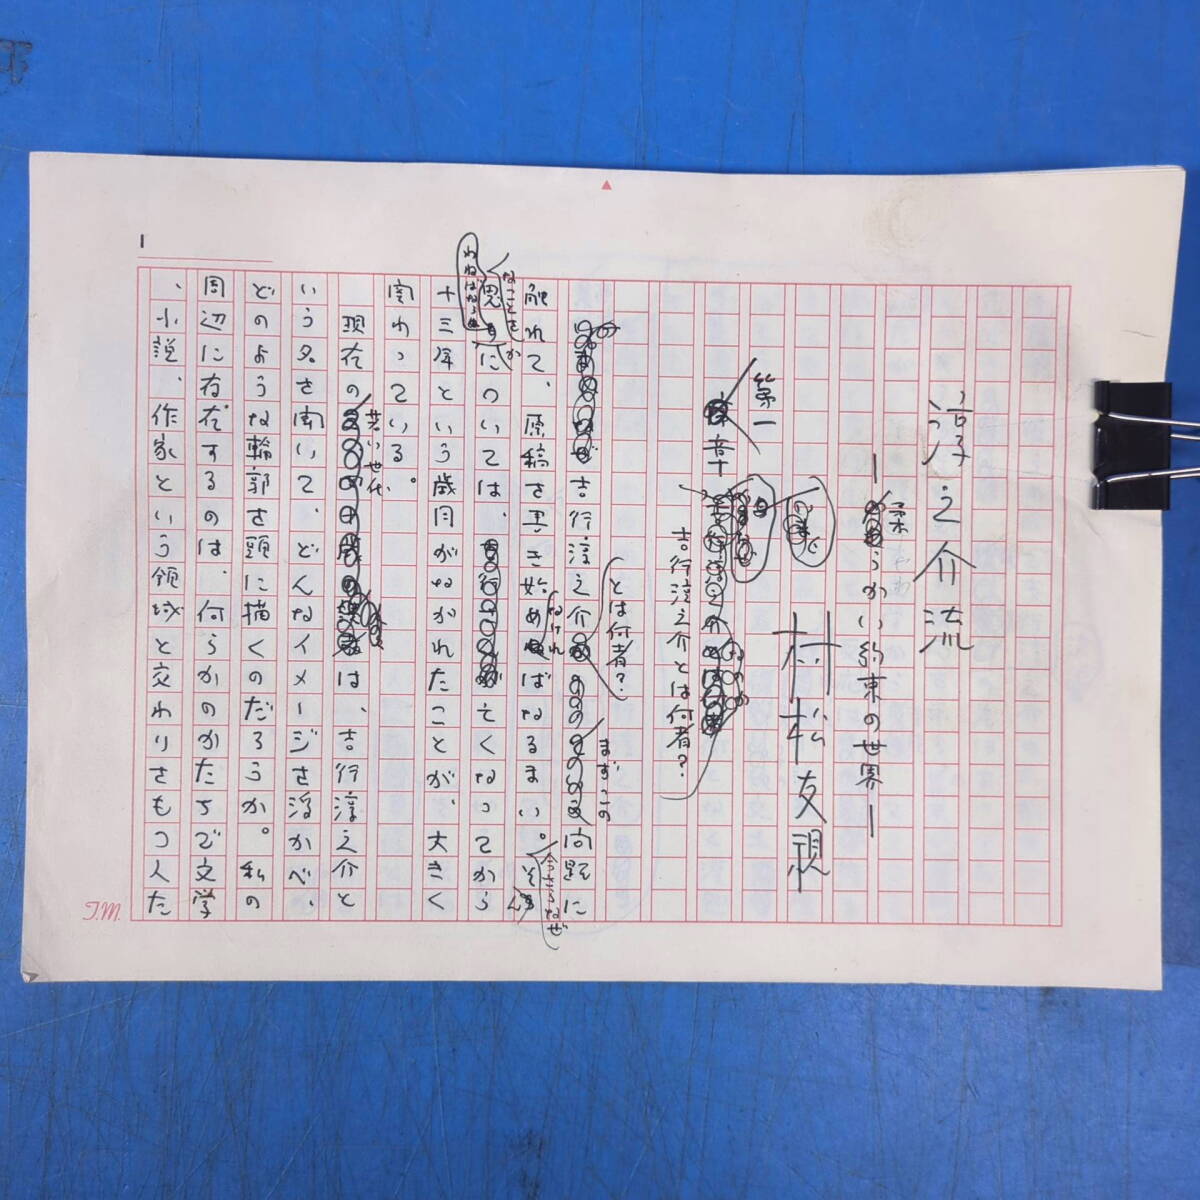 淳之介流
―柔らかい約束の世界―
村松友視
第一章
吉行淳之介とは何者?
吉行淳之介とは何者?まずこの問題に
触れて、原稿を書き始めなければなるまい。今さらなぜそん
なことを思わねばならぬかについては、亡くなってから
十三年という歳月がながれたことが、大きく
関わっている。
現在の若い世代は、吉行淳之介と
いう名を聞いて、どんなイメージを浮かべ、
どのような輪郭を頭に描くのだろうか。私の
周辺に存在するのは、何らかのかたちで文学
、小説、作家という領域と交わりをもつ人た
1
T.M.